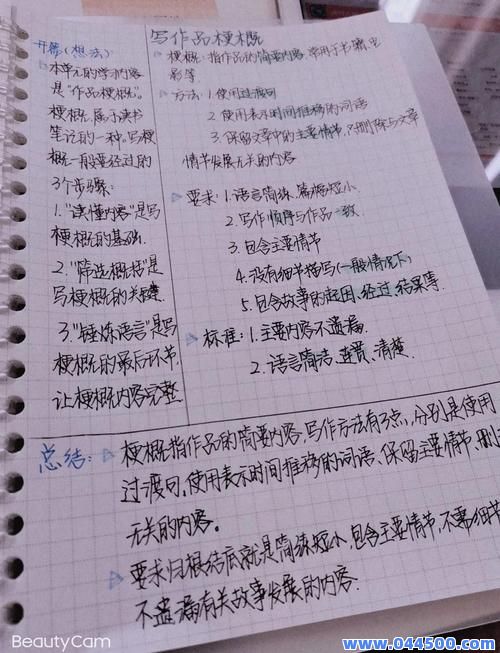 写作品梗概
开篇(想法)
本单元的学习内容
是"作品梗概"。
梗概属于读书
笔记的一种。写梗
概一般要经过的
3个步骤:
1."读懂内容"是写
梗概的基础.
2."筛选概括"是
写梗概的关键.
3."锤炼语言"是写
梗概的最后环节,
让梗概内容完整
梗概:指作品的简要内容,常用于书籍,电
影等.
方法:1.使用过渡句
2.使用表示时间推移的词语
3.保留文章中的主要情节,删除与文章
情节发展无关的内容
要求:1.语言简练,篇幅短小
2.写作顺序与作品一致.
3.包含主要情节
4.没有细节描写(一般情况下)
5.包含故事的起因、经过、结果等.
标准:1.主要内容不遗漏.
2.语言简洁、连贯、清楚.
总结:梗概指作品的简要内容.写作方法有3点,分别是使用
过渡句,使用表示时间推移的词语、保留主要情节,删
无关的内容。
要求归根结底就是简练短小,包含主要情节,不需细节
不遗漏有关故事发展的内容.
BeautyCam
www.044500.com